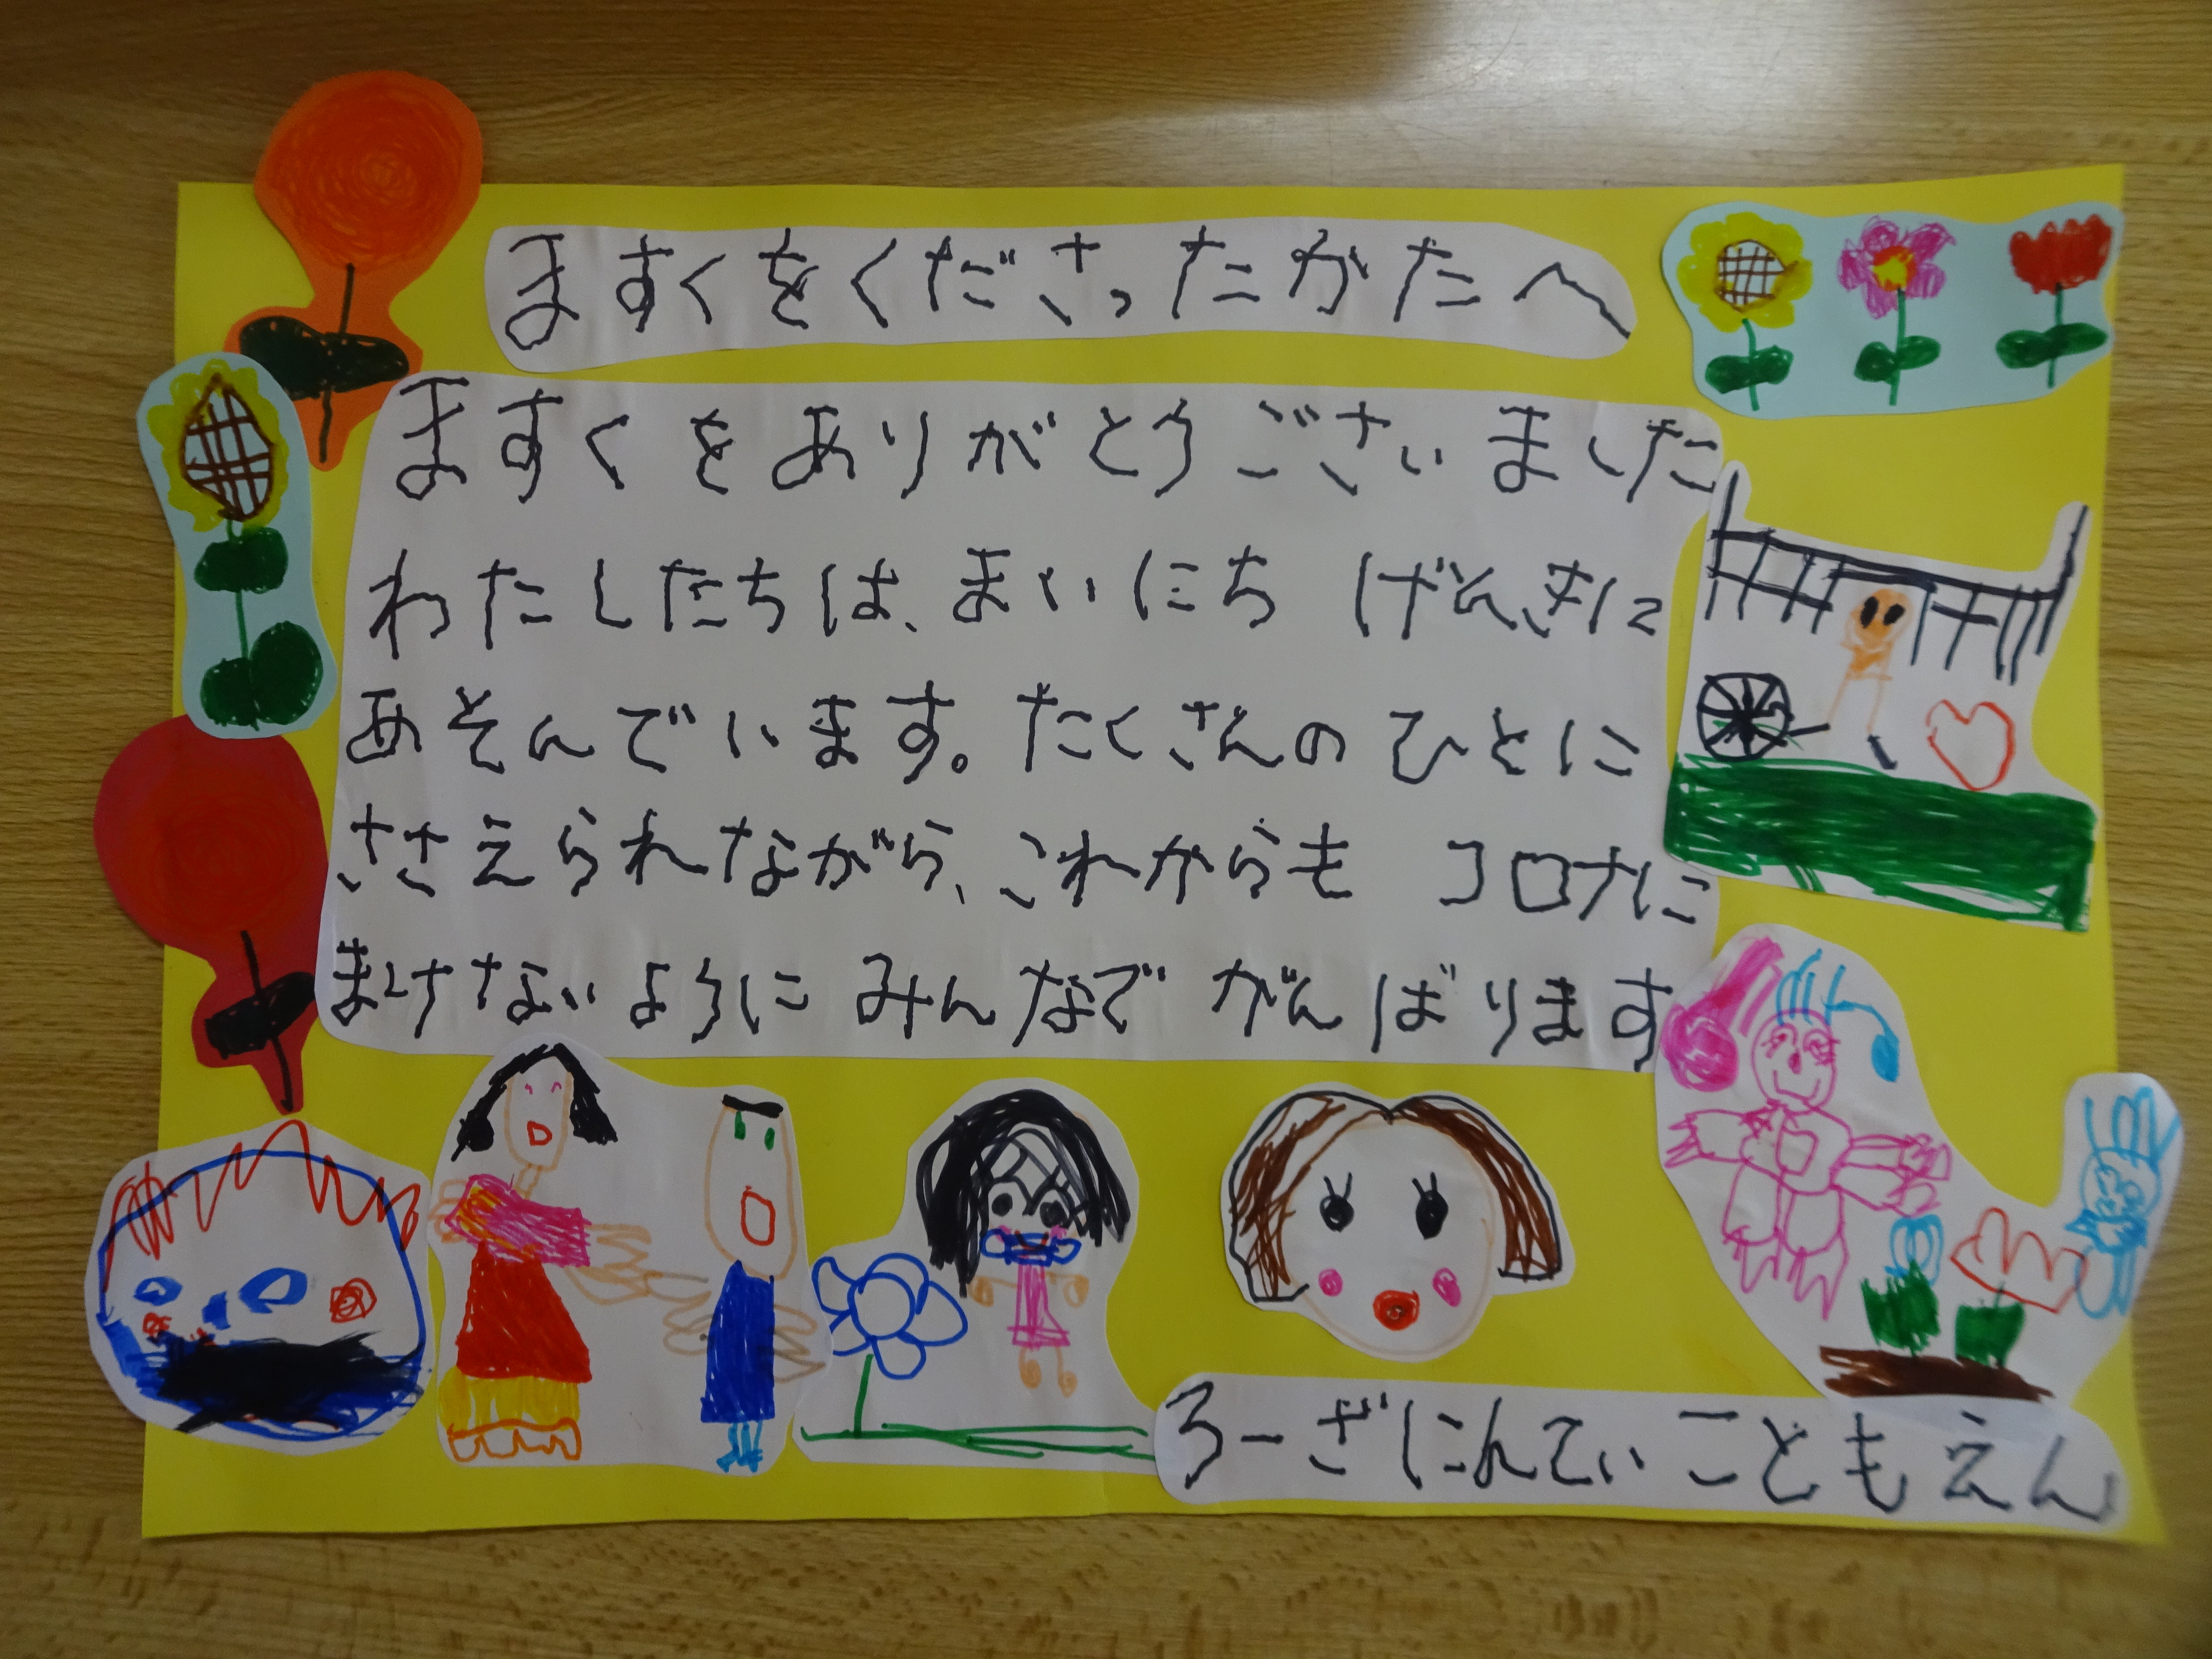 ますくをくださったかたへ
ますくをありがとうございました
わたしたちは、まいにち げんきに
あそんでいます。たくさんのひとに
ささえられながら、これからも コロナに
まけないように みんなで がんばります
ろーざにんてい こどもえん